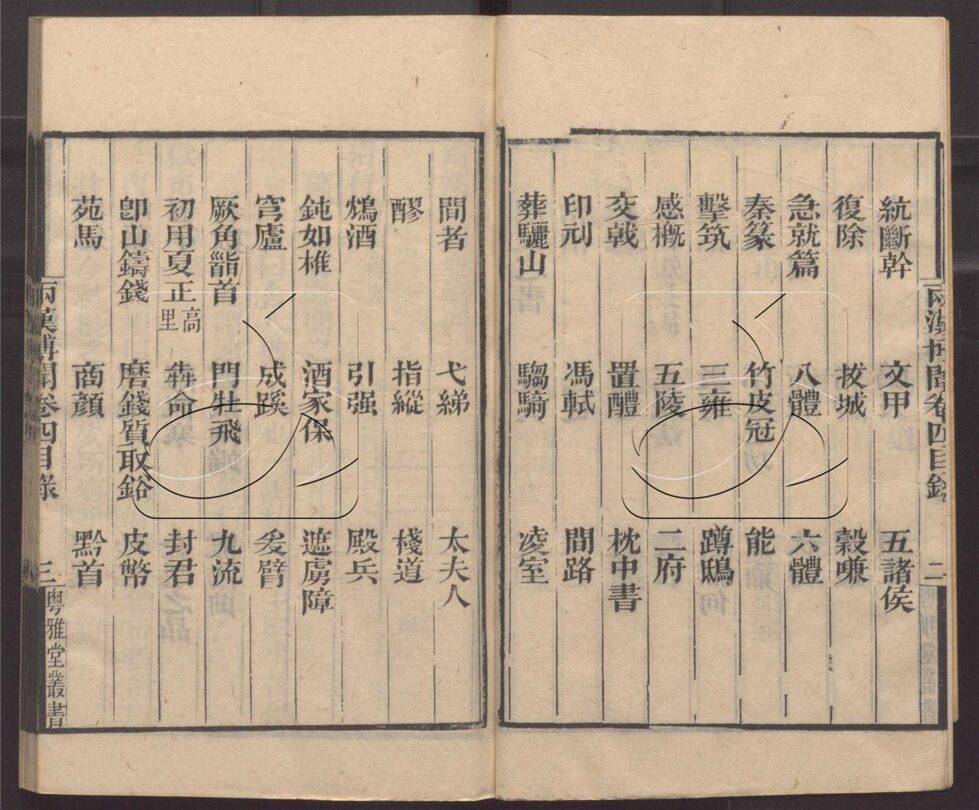 兩漢博聞卷四目錄 二
統斷幹 文甲 五諸侯
復除 拔城 穀嗛
急就篇 八體 六體
秦篆 竹皮冠 能
擊筑 三雍 蹲鴟
感概 五陵 二府
交戟 置醴 枕中書
印刓 馮軾 間路
葬驪山 騶騎 凌室
間者 弋綈 太夫人
醪 指縱 棧道
鴆酒 引强 殿兵
鈍如椎 酒家保 遮虜障
穹廬 成蹊 爰臂
厥角䭫首 門牡飛 九流
初用夏正高里 犇命 封君
卽山鑄錢 磨錢質取鋊 皮幣
苑馬 商顏 黔首
兩漢博聞卷四目錄 三 粵雅堂叢書